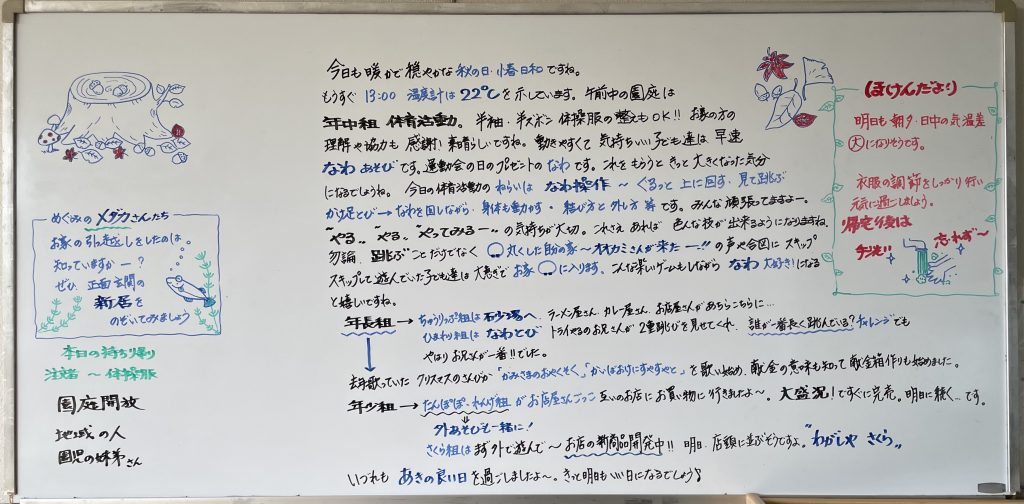 今日も暖かで穏やかな秋の日・小春日和ですね。
もうすぐ 13:00 温度計は22℃を示しています。午前中の園庭は
年中組 体育活動。半袖・半ズボン 体操服の整えもOK!! お家の方の
理解や協力も 感謝! 素晴らしいですね。動きやすくて 気持ちいい子ども達は 早速
なわあそびです。運動会の日のプレゼントの なわです。これをもらうと きっと 大きくなった気分
になるでしょうね。今日の体育活動のねらいは なわ操作 〜 ぐるっと 上に回す・見て跳ぶ
かけ足とび→なわを回しながら・身体も動かす・結び方と外し方 等 です。みんな頑張ってますよー。
"やる、、やる、、やってみるー" の気持ちが大切。これさえあれば 色んな技が 出来るようになりますね。
勿論、跳ぶことだけでなく ○丸くした自分の家〜オオカミさんが来たー!! の声を合図に スキップ
スキップして遊んでいた子ども達は大急ぎで お家○に入ります。こんな楽しいゲームもしながら なわ大好き!になる
と嬉しいですね。
年長組→ちゅうりっぷ組は 砂場へ、ラーメン屋さん、カレー屋さん、お店屋さんがあちらこちらに…
ひまわり組は なわとび トライやるのお兄さんが 2重跳びを見せてくれ、誰が一番長く跳んでいる?チャレンジでも
やはりお兄さんが一番!!でした。
去年歌っていた クリスマスのさんびか「かみさまのおやくそく」「かいばおけにすやすやと」を歌い始め、献金の意味も知って献金箱作りも始めました。
年少組→たんぽぽ・れんげ組 がお店屋さんごっこ 互いのお店にお買い物に行きましたよ〜。大盛況!ですぐに完売。明日に続く…です。
外あそびも一緒に!
さくら組は まず外で遊んで〜お店の新商品開発中!! 明日、店頭に並ぶそうですよ。"わがしや さくら"
いづれも あきの良い日を過ごしましたよ〜。きっと明日もいい日になるでしょう♪
めぐみのメダカさんたち
お家の引っ越しをしたのは、
知っていますかー?
ぜひ、正面玄関の
新居を
のぞいてみましょう
本日の持ち帰り
注) 〜 体操服
園庭開放
地域の人
園児の姉弟さん
ほけんだより
明日も朝夕・日中の気温差
大になりそうです。
衣服の調節をしっかり行い
元気に過ごしましょう。
帰宅後は
手洗い 忘れず〜